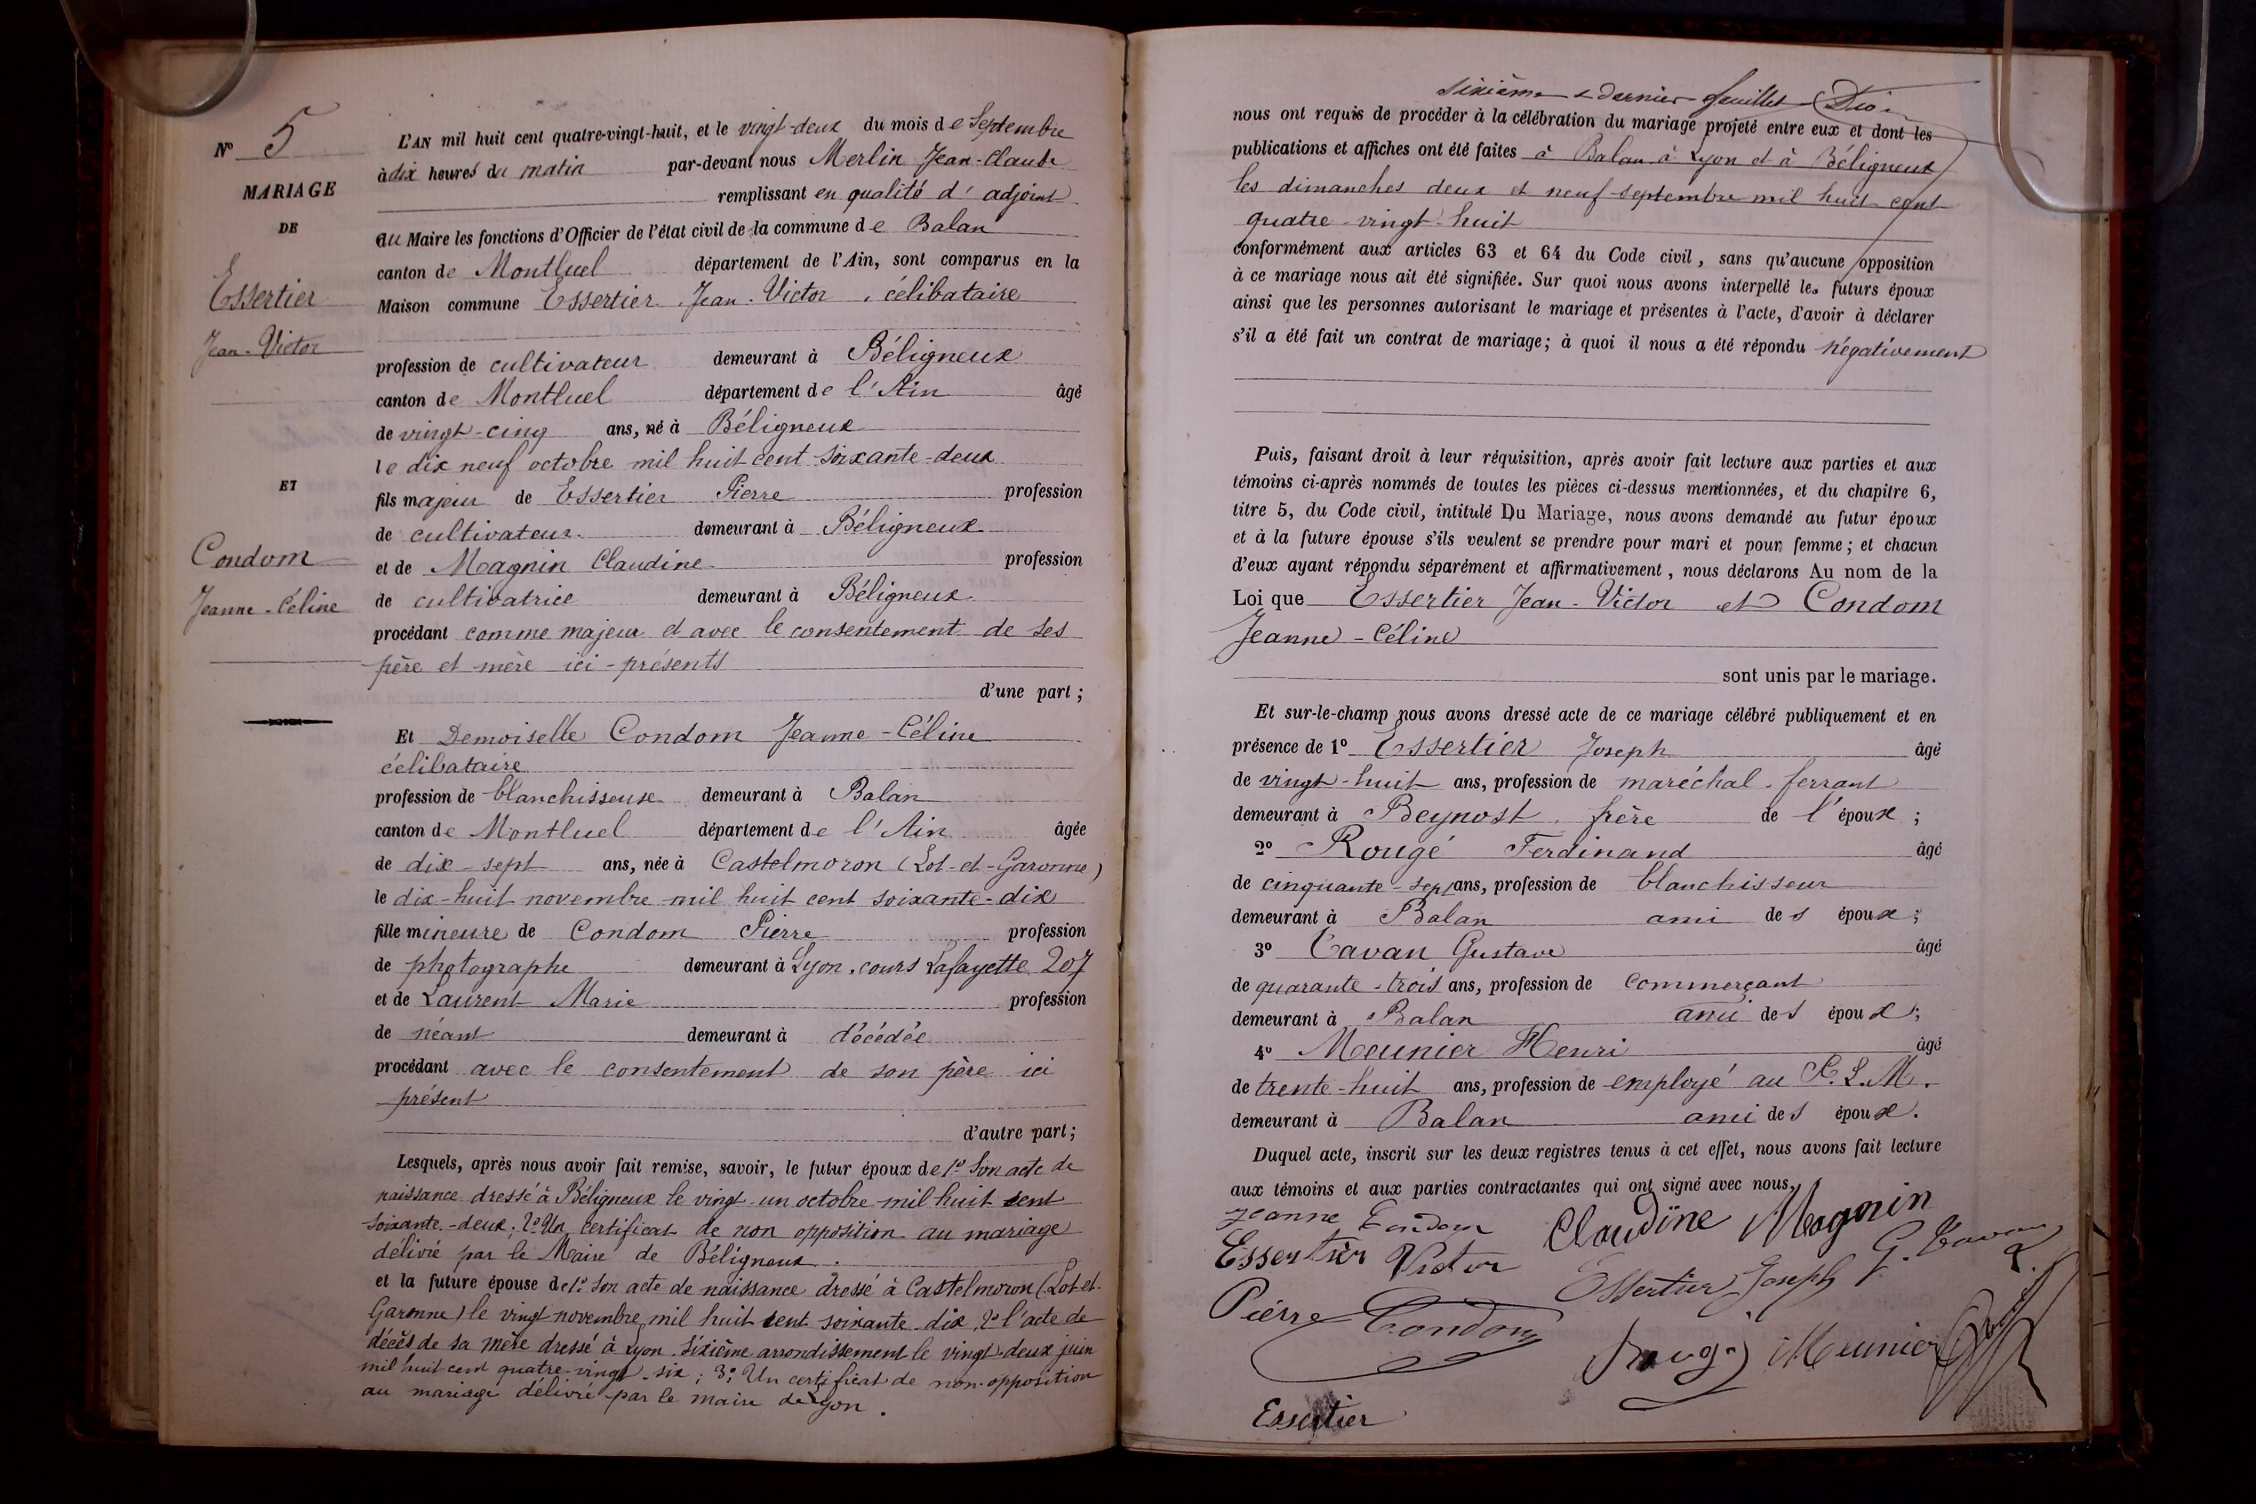 N° 5
MARIAGE
DE
Essertier
Jean-Victor
ET
Condom
Jeanne-Céline
L'AN mil huit cent quatre-vingt-huit, et le vingt-deux du mois de Septembre
à dix heures du matin par-devant nous Merlin Jean-Claude
remplissant en qualité d'adjoint
au Maire les fonctions d'Officier de l'état civil de la commune de Balan
canton de Montluel département de l'Ain, sont comparus en la
Maison commune Essertier Jean-Victor, célibataire
profession de cultivateur demeurant à Béligneux
canton de Montluel département de l'Ain âgé
de vingt-cinq ans, né à Béligneux
le dix neuf octobre mil huit cent soixante-deux
fils majeur de Essertier Pierre profession
de cultivateur demeurant à Béligneux
et de Magnin Claudine profession
de cultivatrice demeurant à Béligneux
procédant comme majeur et avec le consentement de ses
père et mère ici-présents
d'une part ;
Et Demoiselle Condom Jeanne-Céline
célibataire
profession de blanchisseuse demeurant à Balan
canton de Montluel département de l'Ain âgée
de dix-sept ans, née à Castelmoron (Lot-et-Garonne)
le dix-huit novembre mil huit cent soixante-dix
fille mineure de Condom Pierre profession
de photographe demeurant à Lyon, cours Lafayette 207
et de Laurent Marie profession
de néant demeurant à décédée
procédant avec le consentement de son père ici
présent
d'autre part ;
Lesquels, après nous avoir fait remise, savoir, le futur époux de 1° Son acte de
naissance dressé à Béligneux le vingt-un octobre mil huit cent
soixante-deux ; 2° Un certificat de non opposition au mariage
délivré par le Maire de Béligneux.
et la future épouse de 1° Son acte de naissance dressé à Castelmoron (Lot-et-
Garonne) le vingt novembre mil huit cent soixante-dix, 2° l'acte de
décès de sa mère dressé à Lyon Sixième arrondissement le vingt-deux juin
mil huit cent quatre-vingt-six ; 3° Un certificat de non-opposition
au mariage délivré par le maire de Lyon.
Sixième & dernier feuillet
nous ont requis de procéder à la célébration du mariage projeté entre eux et dont les
publications et affiches ont été faites à Balan à Lyon et à Béligneux
les dimanches deux et neuf septembre mil huit cent
quatre-vingt-huit
conformément aux articles 63 et 64 du Code civil, sans qu'aucune opposition
à ce mariage nous ait été signifiée. Sur quoi nous avons interpellé les futurs époux
ainsi que les personnes autorisant le mariage et présentes à l'acte, d'avoir à déclarer
s'il a été fait un contrat de mariage ; à quoi il nous a été répondu négativement
Puis, faisant droit à leur réquisition, après avoir fait lecture aux parties et aux
témoins ci-après nommés de toutes les pièces ci-dessus mentionnées, et du chapitre 6,
titre 5, du Code civil, intitulé Du Mariage, nous avons demandé au futur époux
et à la future épouse s'ils veulent se prendre pour mari et pour femme ; et chacun
d'eux ayant répondu séparément et affirmativement, nous déclarons Au nom de la
Loi que Essertier Jean-Victor et Condom
Jeanne-Céline
sont unis par le mariage.
Et sur-le-champ nous avons dressé acte de ce mariage célébré publiquement et en
présence de 1° Essertier Joseph âgé
de vingt-huit ans, profession de maréchal-ferrant
demeurant à Beynost frère de l'époux ;
2° Rougé Ferdinand âgé
de cinquante-sept ans, profession de blanchisseur
demeurant à Balan ami des époux ;
3° Cavan Gustave âgé
de quarante-trois ans, profession de commerçant
demeurant à Balan ami des époux ;
4° Meunier Henri âgé
de trente-huit ans, profession de employé au P.L.M.
demeurant à Balan ami des époux.
Duquel acte, inscrit sur les deux registres tenus à cet effet, nous avons fait lecture
aux témoins et aux parties contractantes qui ont signé avec nous.
Jeanne Condom Claudine Magnin
Essertier Victor Essertier Joseph G. Cavan
Pierre Condom
Rougé Meunier
Essertier